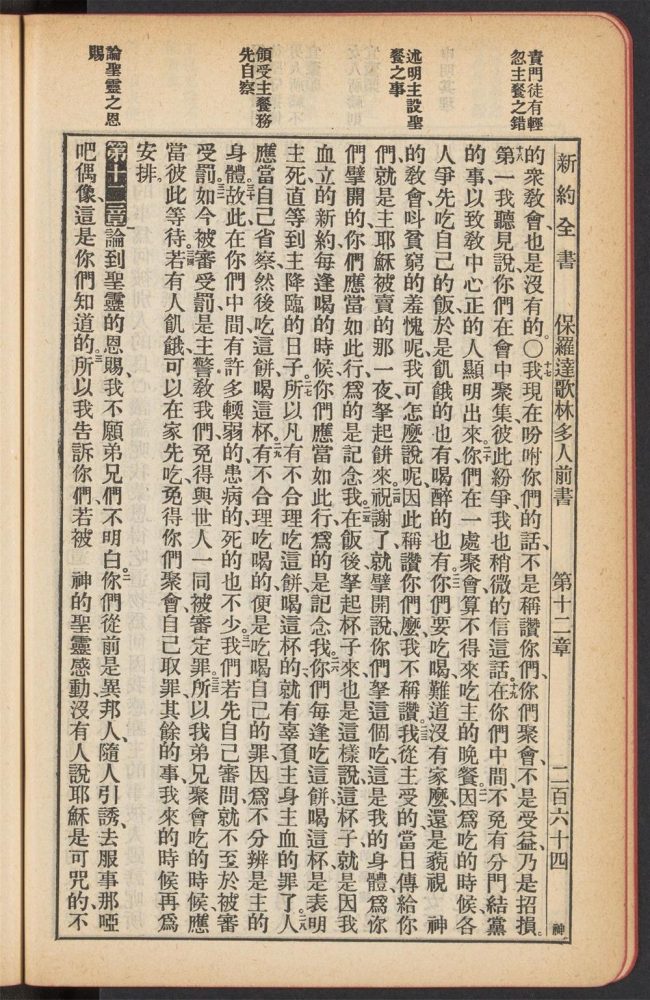 新約全書　保羅達歌林多人前書　第十二章　二百六十四　神
責門徒有輕
忽主餐之錯
述明主設聖
餐之事
領受主餐務
先自察
論聖靈之恩
賜
的衆敎會也是沒有的。〇十七我現在吩咐你們的話、不是稱讚你們、你們聚會、不是受益乃是招損。
十八第一我聽見說你們在會中聚集彼此紛爭、我也稍微的信這話。十九在你們中間、不免有分門結黨
的事、以致敎中心正的人顯明出來。二十你們在一處聚會、算不得來吃主的晚餐。二一因爲吃的時候、各
人爭先吃自己的飯、於是飢餓的也有、喝醉的也有。二二你們要吃喝、難道沒有家麼、還是藐視　神
的敎會、呌貧窮的羞愧呢、我可怎麼說呢、因此稱讚你們麼、我不稱讚。二三我從主受的、當日傳給你
們、就是主耶穌被賣的那一夜、拏起餅來。二四祝謝了、就擘開、說、你們拏這個吃、這是我的身體、爲你
們擘開的、你們應當如此行、爲的是記念我。二五在飯後、拏起杯子來、也是這樣說、這杯子、就是因我
血立的新約、每逢喝的時候、你們應當如此行、爲的是記念我。二六你們每逢吃這餅喝這杯、是表明
主死、直等到主降臨的日子。二七所以凡有不合理吃這餅喝這杯的、就有辜負主身主血的罪了。二八人
應當自己省察、然後吃這餅喝這杯。二九有不合理吃喝的、便是吃喝自己的罪、因爲不分辨是主的
身體。三十故此在你們中間有許多輭弱的、患病的、死的也不少。三一我們若先自己審問、就不至於被審
受罰。三二如今被審受罰、是主警敎我們、免得與世人一同被審定罪。三三所以我弟兄、聚會吃的時候、應
當彼此等待。三四若有人飢餓、可以在家先吃、免得你們聚會自己取罪、其餘的事、我來的時候再爲
安排。
第十二章 一論到聖靈的恩賜、我不願弟兄們不明白。二你們從前是異邦人、隨人引誘、去服事那啞
吧偶像、這是你們知道的。三所以我告訴你們、若被　神的聖靈感動、沒有人說耶穌是可咒的、不